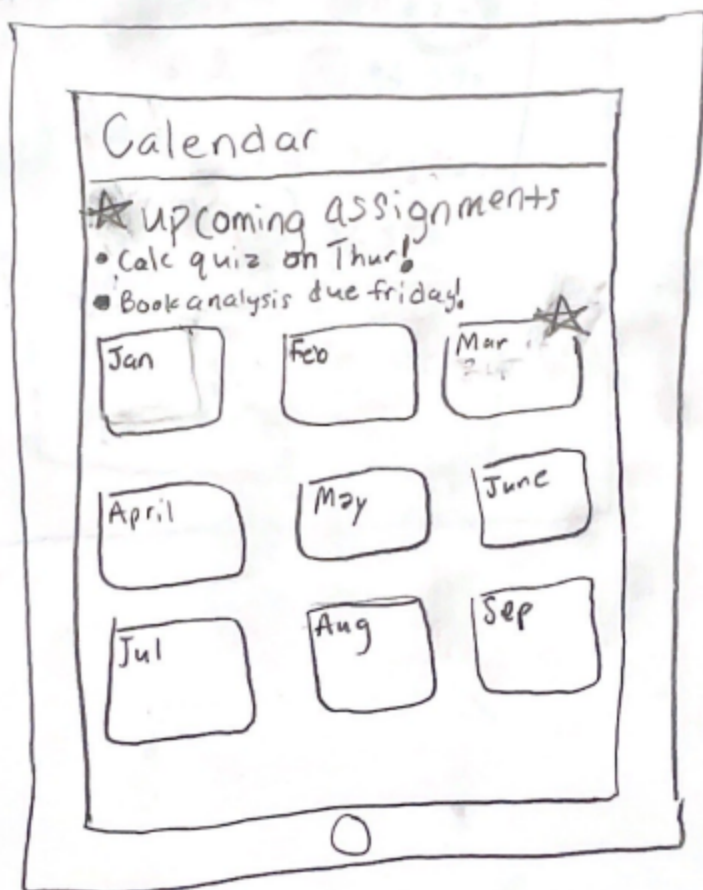 Calendar
upcoming assignments
• Calc quiz on Thur!
• Book analysis due friday!
Jan
Feb
Mar
April
May
June
Jul
Aug
Sep